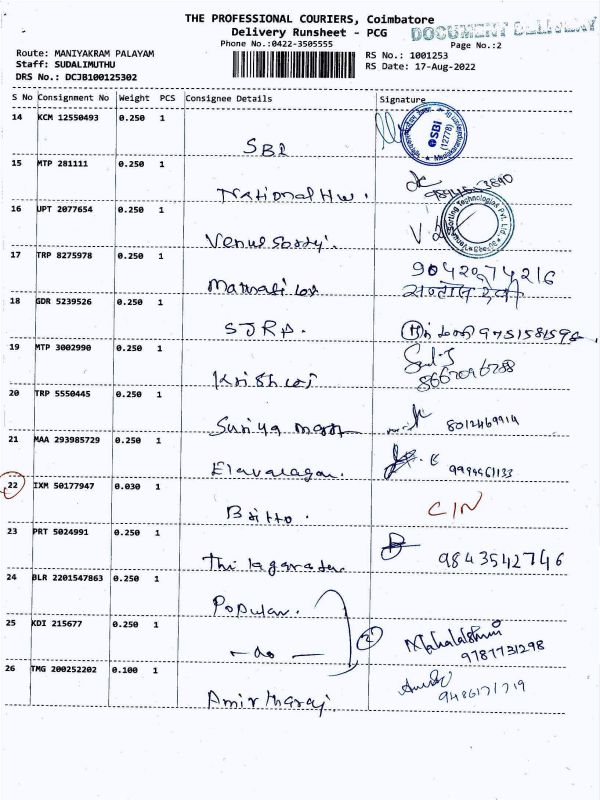 THE PROFESSIONAL COURIERS, Coimbatore
DOCUMENT DELIVERY
Delivery Runsheet - PCG
Phone No.:0422-3505555
Page No.:2
Route: MANIYAKRAM PALAYAM
RS No.: 1001253
Staff: SUDALIMUTHU
RS Date: 17-Aug-2022
DRS No.: DCJB100125302
S No Consignment No Weight PCS Consignee Details Signature
14 KCM 12550493 0.250 1
SBI
SBI (12778)
15 MTP 281111 0.250 1
National Hw.
16 UPT 2077654 0.250 1
Venus
Venus Sorting Technologies Pvt. Ltd.
17 TRP 8275978 0.250 1
9042074216
18 GDR 5239526 0.250 1
SJRA.
19 MTP 3002990 0.250 1
20 TRP 5550445 0.250 1
Suriya
8012469914
21 MAA 293985729 0.250 1
Elavalagan.
22 IXM 50177947 0.030 1
Britto.
C/N
23 PRT 5024991 0.250 1
9843542746
24 BLR 2201547863 0.250 1
Popular.
25 KDI 215677 0.250 1
-do-
2
Mahalakshmi
9787731298
26 TMG 200252202 0.100 1
Amirtharaj.
9486171719